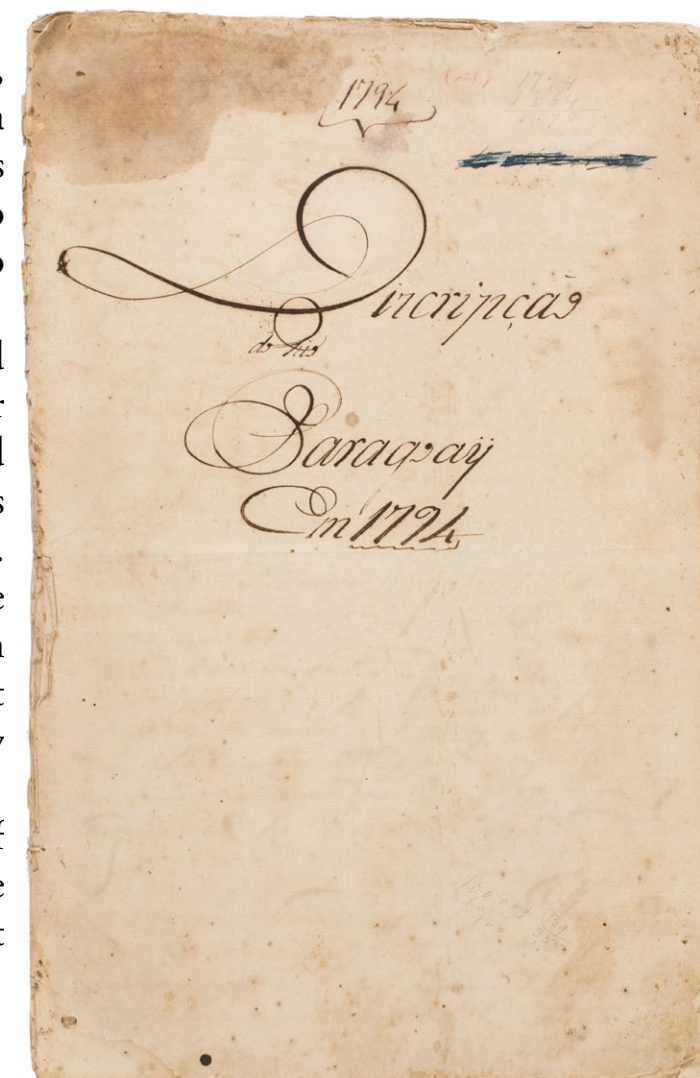 1794
Discripção
do Rio
Paraguaÿ
Em 1794